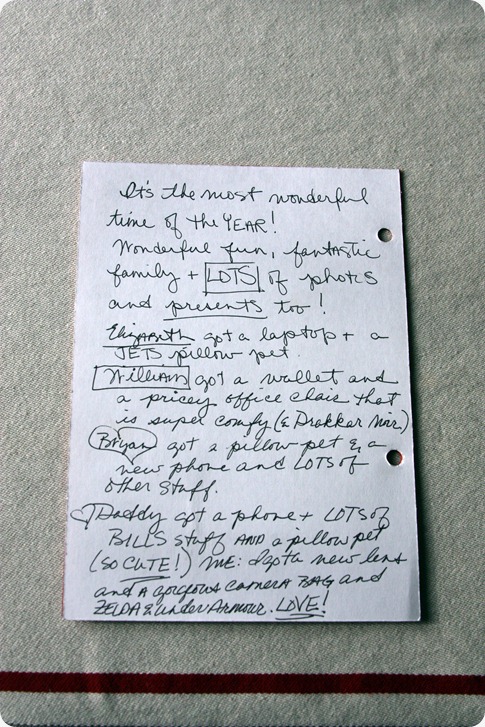 It's the most wonderful
time of the YEAR!
Wonderful fun, fantastic
family + LOTS of photos
and presents too!
Elizabeth got a laptop + a
JETS pillow pet.
William got a wallet and
a pricey office chair that
is super comfy (& Drakkar Noir.)
Bryan got a pillow pet & a
new phone and LOTS OF
other stuff.
Daddy got a phone + LOTS of
BILLS stuff AND a pillow pet
(SO CUTE!) ME: I got a new lens
and A gorgeous camera BAG and
ZELDA & under Armour. LOVE!